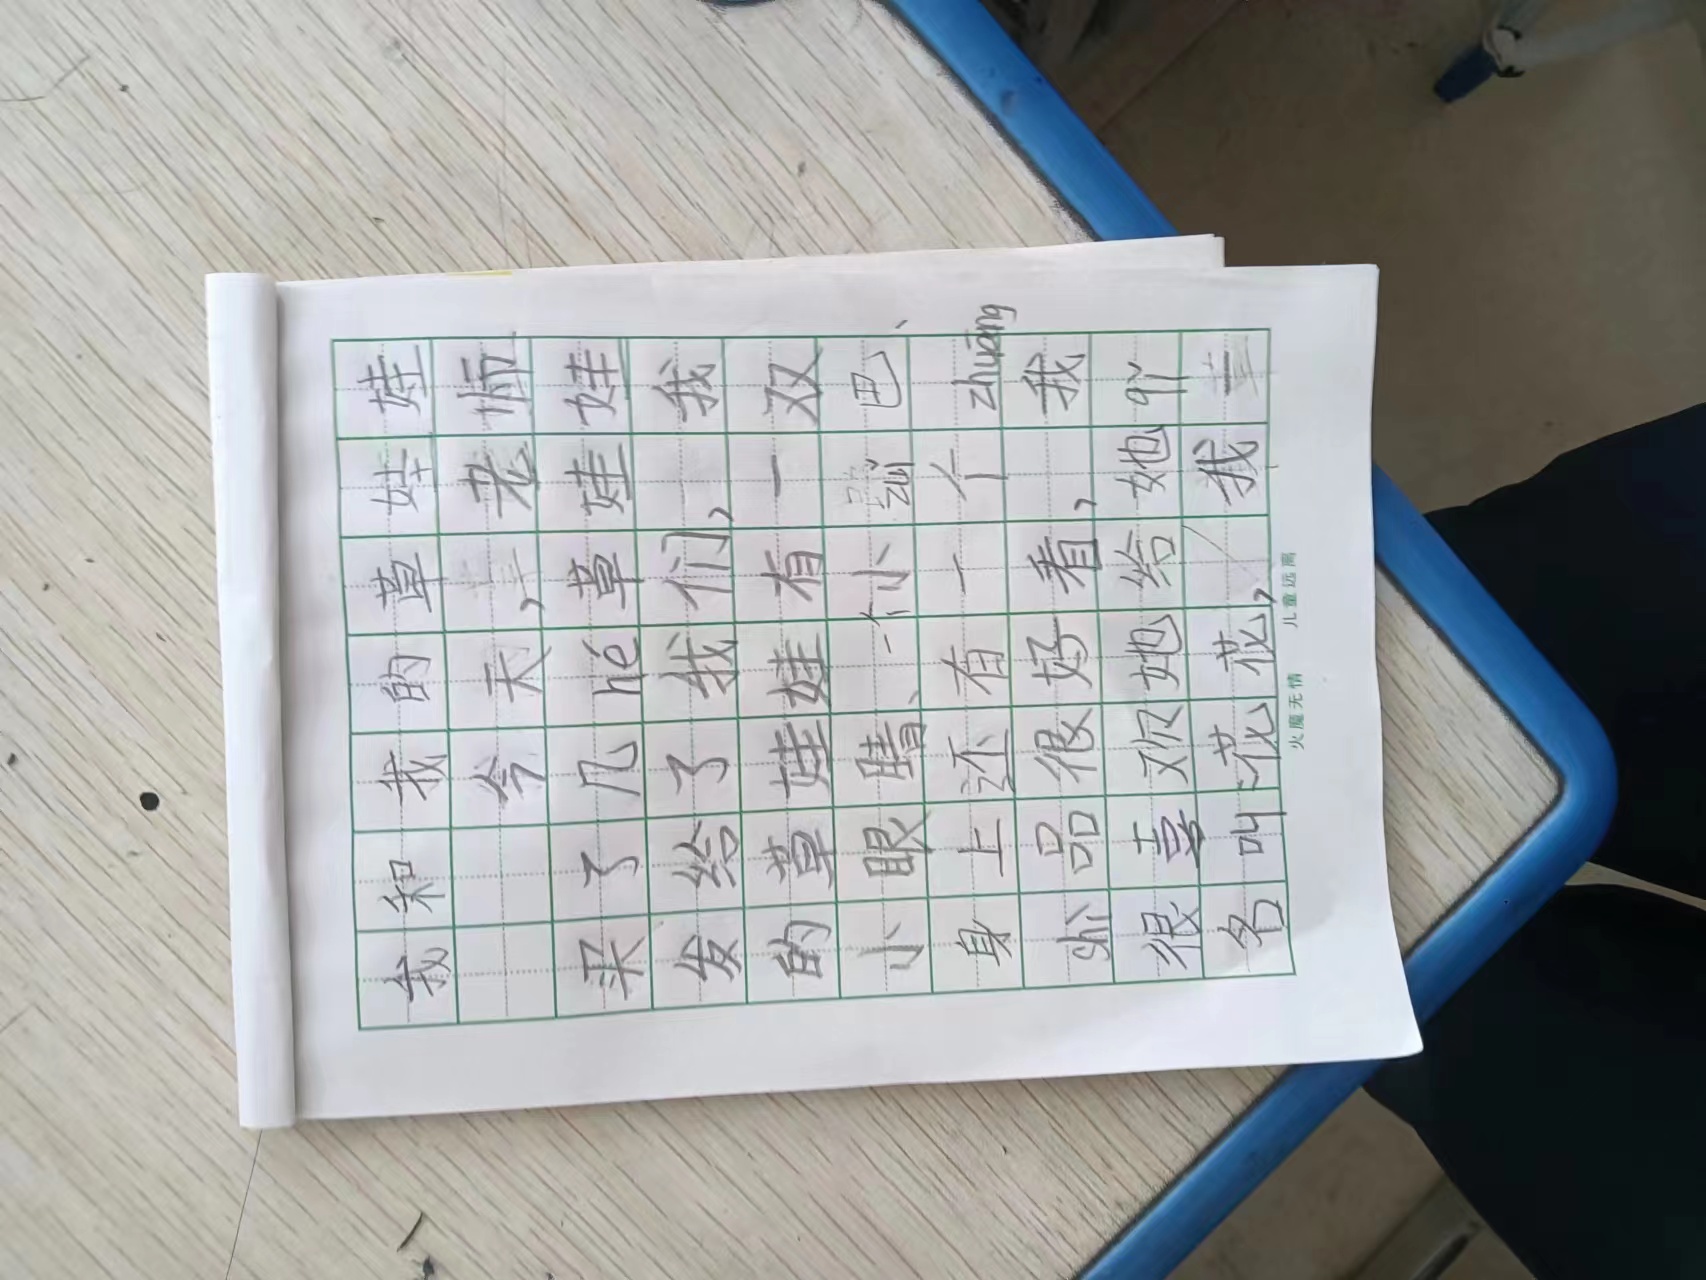 我和我的草娃娃
今天，老师
采了几hé草娃娃
发给了我们，我
的草娃娃有一双
小眼睛、一个小zuǐ巴、
身上还有一个zhuāng
shì品很好看，我
很喜欢她给她qǐ
名叫花花，我
火魔无情 儿童远离